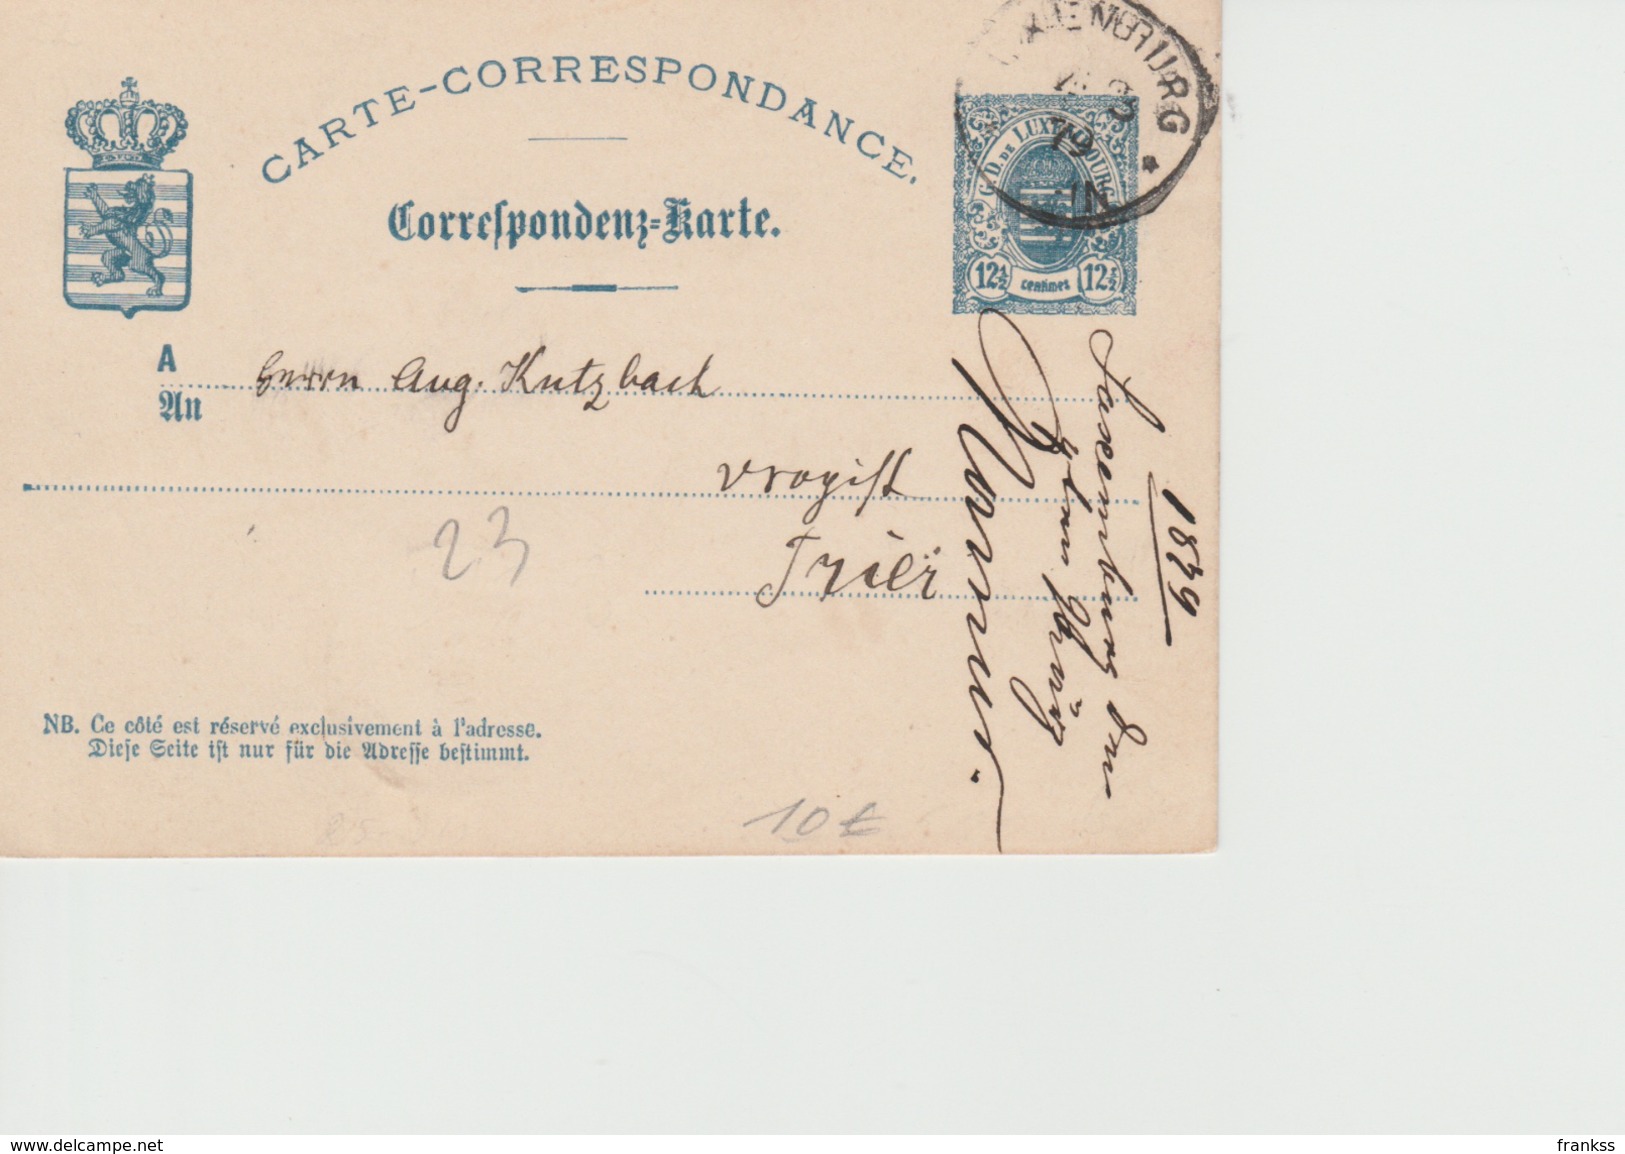 CARTE-CORRESPONDANCE.
Correspondenz-Karte.
LUXEMBOURG
79
G. D. DE LUXEMBOURG
12½ centimes 12½
A
An
Herrn Aug. Kutzbach
Drogist
Trier
23
1879
Luxemburg den
NB. Ce côté est réservé exclusivement à l'adresse.
Diese Seite ist nur für die Adresse bestimmt.
10 €
www.delcampe.net
frankss